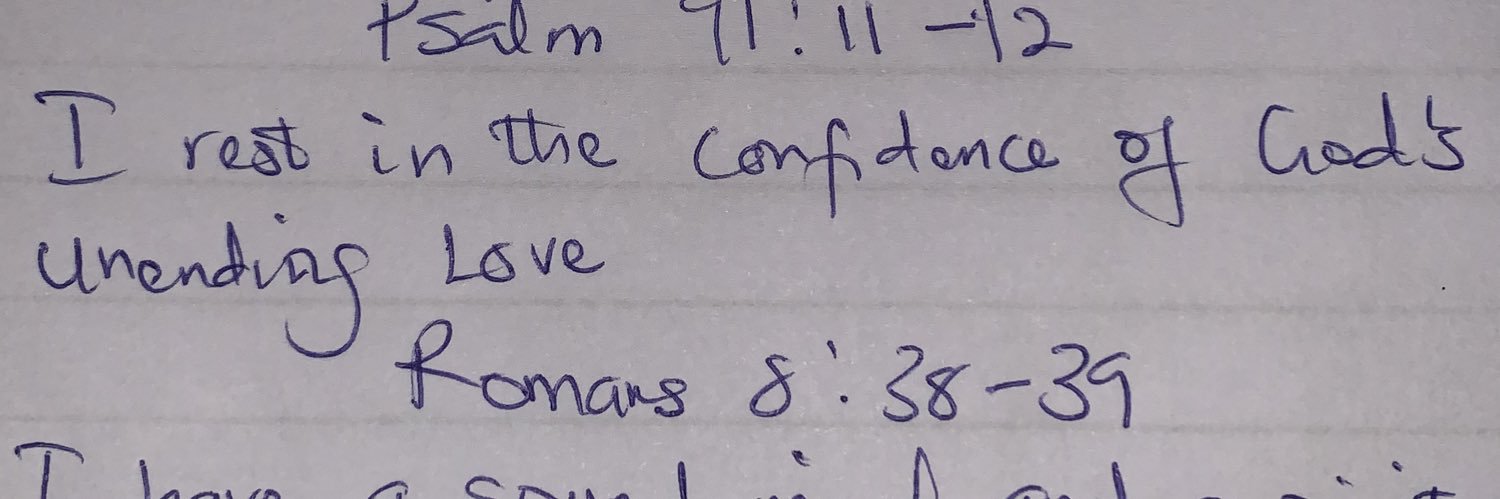 Psalm 91:11-12
I rest in the confidence of God's
unending Love
Romans 8:38-39
I have a sound